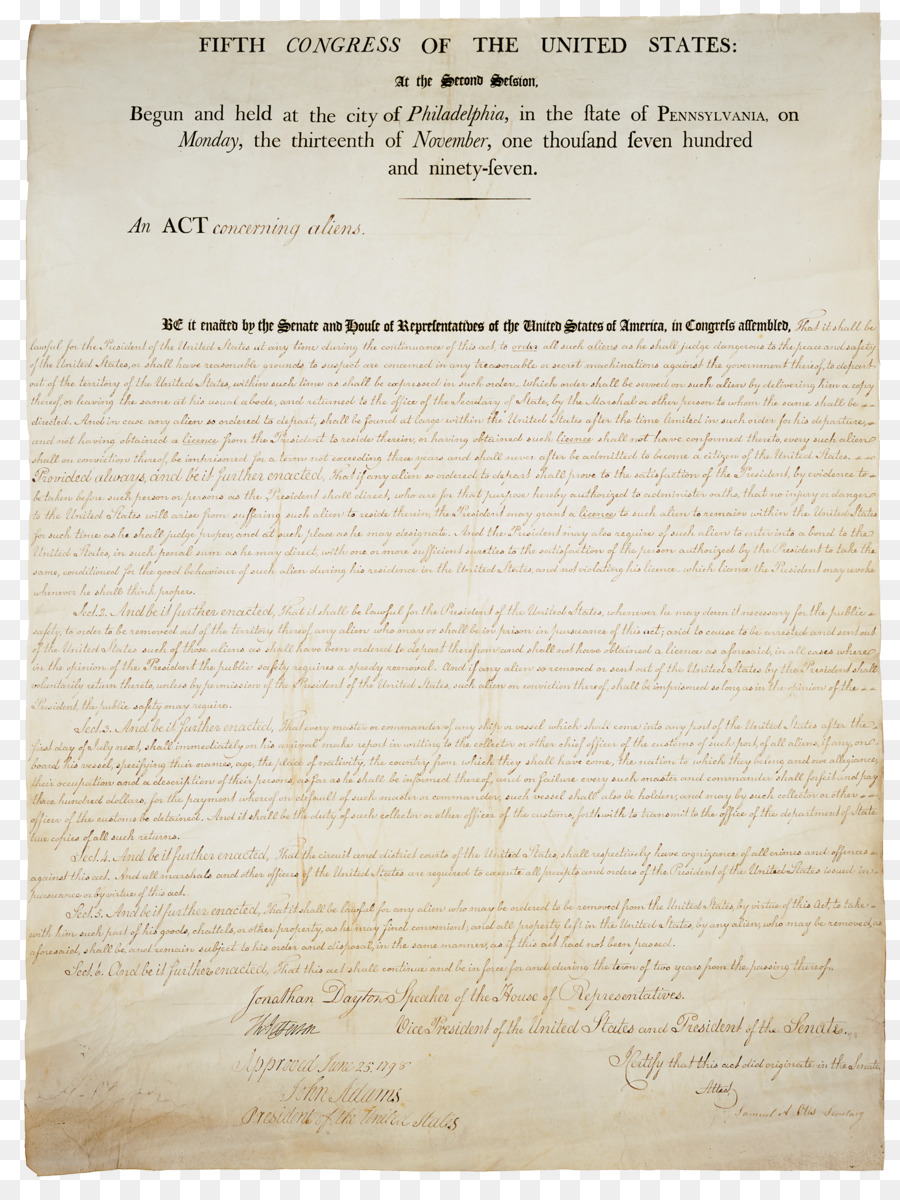 FIFTH CONGRESS OF THE UNITED STATES:
At the Second Session,
Begun and held at the city of Philadelphia, in the ſtate of PENNSYLVANIA, on
Monday, the thirteenth of November, one thouſand ſeven hundred
and ninety-ſeven.
An ACT concerning aliens.
BE it enacted by the Senate and Houſe of Repreſentatives of the United States of America, in Congreſs aſſembled, That it shall be
lawful for the President of the United States at any time during the continuance of this act, to order all such aliens as he shall judge dangerous to the peace and safety
of the United States, or shall have reasonable grounds to suspect are concerned in any treasonable or secret machinations against the government thereof, to depart
out of the territory of the United States, within such time as shall be expressed in such order which order shall be served on such alien by delivering him a copy
thereof, or leaving the same at his usual abode, and returned to the office of the Secretary of State, by the Marshal or other person to whom the same shall be
directed. And in case any alien so ordered to depart, shall be found at large within the United States after the time limited in such order for his departure,
and not having obtained a licence from the President to reside therein, or having obtained such licence shall not have conformed thereto, every such alien
shall on conviction thereof, be imprisoned for a term not exceeding three years and shall never after be admitted to become a citizen of the United States.
Provided always, and be it further enacted, That if any alien so ordered to depart shall prove to the satisfaction of the President, by evidence to
be taken before such person or persons as the President shall direct, who are for that purpose hereby authorized to administer oaths, that no injury or danger
to the United States will arise from suffering such alien to reside therein, the President may grant a licence to such alien to remain within the United States
for such time as he shall judge proper, and at such place as he may designate. And the President may also require of such alien to enter into a bond to the
United States, in such penal sum as he may direct, with one or more sufficient sureties to the satisfaction of the person authorized by the President to take the
same, conditioned for the good behaviour of such alien during his residence in the United States, and not violating his licence. which licence the President may revoke
whenever he shall think proper.
Sect. 2. And be it further enacted, That it shall be lawful for the President of the United States, whenever he may deem it necessary for the public
safety, to order to be removed out of the territory thereof, any alien who may or shall be in prison in pursuance of this act; and to cause to be arrested and sent out
of the United States such of those aliens as shall have been ordered to depart therefrom and shall not have obtained a licence as aforesaid, in all cases where
in the opinion of the President the public safety requires a speedy removal. And if any alien so removed or sent out of the United States by the President shall
voluntarily return thereto, unless by permission of the President of the United States, such alien on conviction thereof, shall be imprisoned so long as in the opinion of the
President, the public safety may require.
Sect. 3. And be it further enacted, That every master or commander of any ship or vessel which shall come into any port of the United States after the
first day of July next, shall immediately on his arrival make report in writing to the collector or other chief officer of the customs of such port, of all aliens, if any, on
board his vessel, specifying their names, age, the place of nativity, the country from which they shall have come, the nation to which they belong and owe allegiance,
their occupation and a description of their persons, as far as he shall be informed thereof, and on failure every such master and commander shall forfeit and pay
three hundred dollars, for the payment whereof on default of such master or commander, such vessel shall also be holden, and may by such collector or other
officer of the customs be detained. And it shall be the duty of such collector or other officer of the customs, forthwith to transmit to the office of the department of State
true copies of all such returns.
Sect. 4. And be it further enacted, That the circuit and district courts of the United States, shall respectively have cognizance of all crimes and offences
against this act. And all marshals and other officers of the United States are required to execute all precepts and orders of the President of the United States issued in
pursuance or by virtue of this act.
Sect. 5. And be it further enacted, That it shall be lawful for any alien who may be ordered to be removed from the United States, by virtue of this Act to take
with him such part of his goods, chattels, or other property, as he may find convenient; and all property left in the United States, by any alien, who may be removed, as
aforesaid, shall be, and remain subject to his order and disposal, in the same manner, as if this act had not been passed.
Sect. 6. And be it further enacted, That this act shall continue and be in force for and during the term of two years from the passing thereof.
Jonathan Dayton Speaker of the House of Representatives.
Th: Jefferson Vice President of the United States and President of the Senate.
Approved June 25. 1798
I Certify that this act did originate in the Senate
John Adams
Attest
President of the United States
Samuel A. Otis Secretary